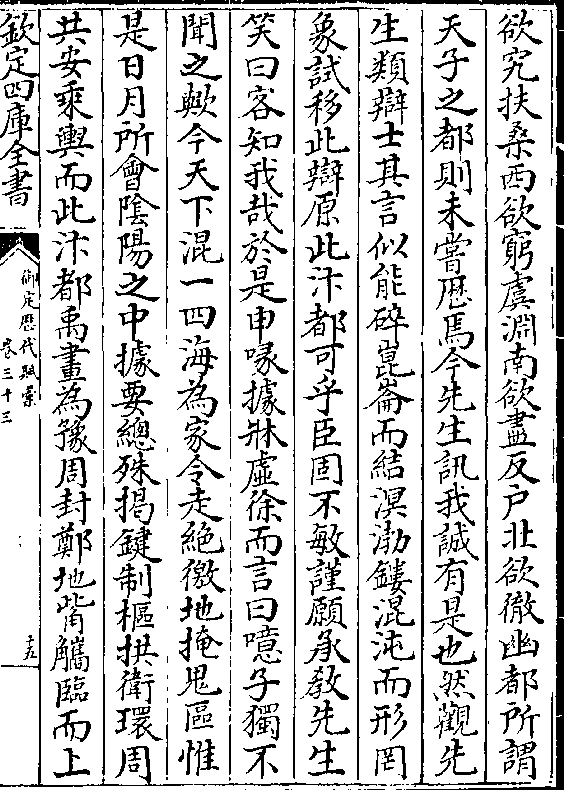 欲究扶桑西欲窮虞淵南欲盡反户北欲徹幽都所謂
天子之都則未嘗厯焉今先生訊我誠有是也然觀先
生類辯士其言似能碎崑崙而結溟渤鏤混沌而形罔
象試移此辯原此汴都可乎臣固不敏謹願承教先生
笑曰客知我哉於是申喙據牀虚徐而言曰噫子獨不
聞之歟今天下混一四海為家令走絶徼地掩鬼區惟
是日月所會陰陽之中據要總殊揭鍵制樞拱衛環周
共安乘輿而此汴都禹畫為豫周封鄭地觜觿臨而上
欽定四庫全書
御定歴代賦彙
卷三十三
十五